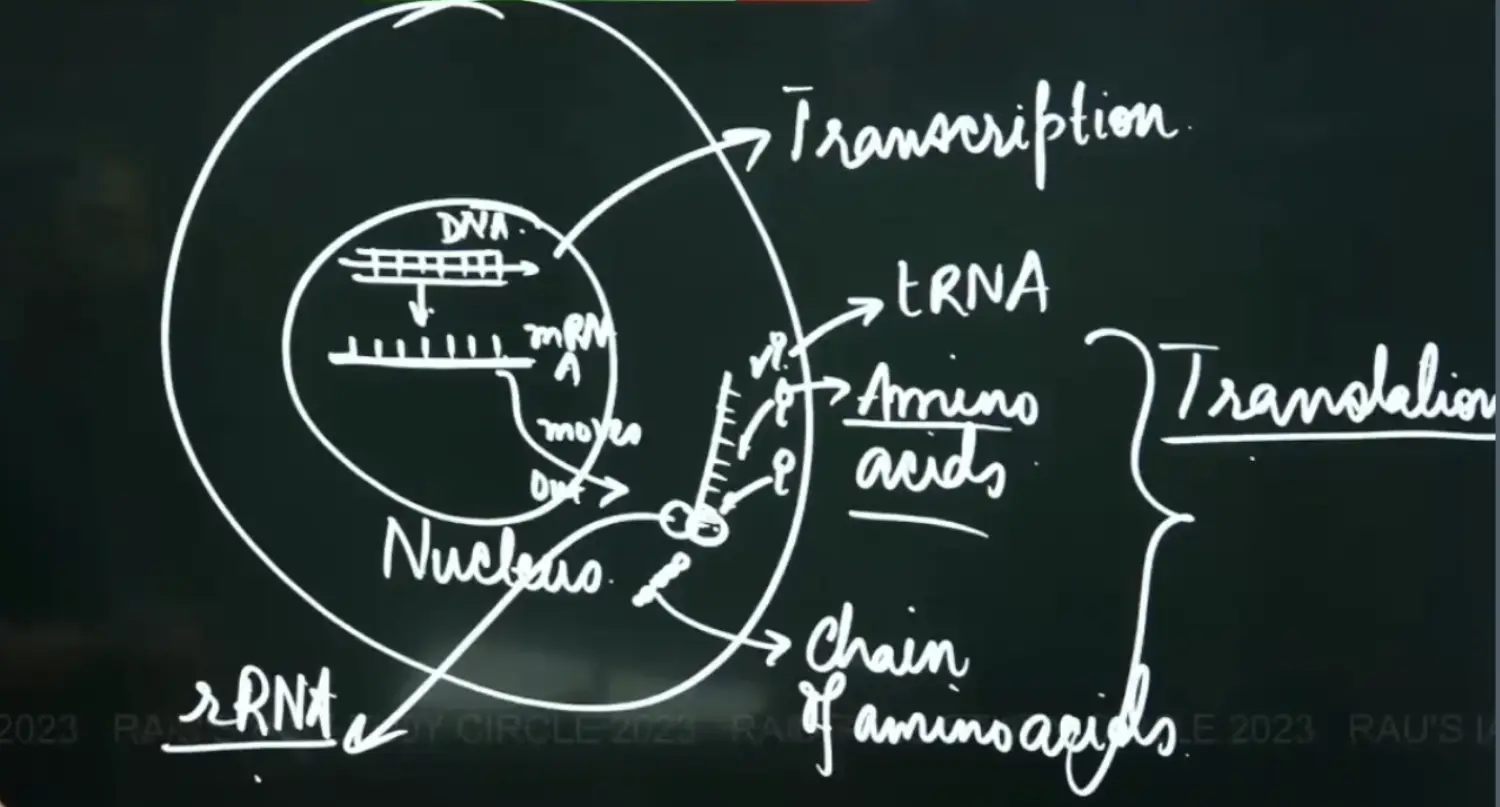 Transcription
DNA
tRNA
mRN
A
Amino
acids
Translation
moves
out
Nucleus
Chain
of amino acids
rRNA
2023 RAU'S IAS STUDY CIRCLE 2023 RAU'S IAS STUDY CIRCLE 2023 RAU'S IA